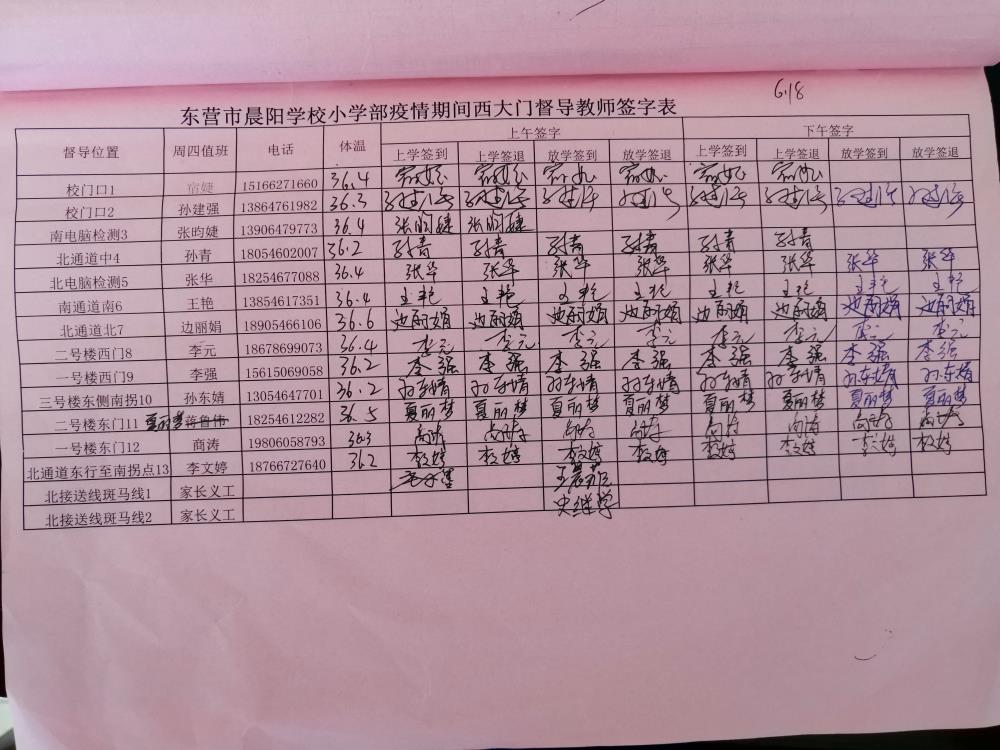 6.18
东营市晨阳学校小学部疫情期间西大门督导教师签字表
督导位置 周四值班 电话 体温 上午签字 下午签字
上学签到 上学签退 放学签到 放学签退 上学签到 上学签退 放学签到 放学签退
校门口1 宿婕 15166271660 36.4
校门口2 孙建强 13864761982 36.3
南电脑检测3 张昀婕 13906479773 36.4 张昀婕 张昀婕
北通道中4 孙青 18054602007 36.2 孙青 孙青 孙青 孙青 孙青 孙青
北电脑检测5 张华 18254677088 36.4 张华 张华 张华 张华 张华 张华 张华 张华
南通道南6 王艳 13854617351 36.4 王艳 王艳 王艳 王艳 王艳 王艳 王艳 王艳
北通道北7 边丽娟 18905466106 36.6 边丽娟 边丽娟 边丽娟 边丽娟 边丽娟 边丽娟 边丽娟 边丽娟
二号楼西门8 李元 18678699073 36.4 李元 李元 李元 李元 李元 李元 李元 李元
一号楼西门9 李强 15615069058 36.2 李强 李强 李强 李强 李强 李强 李强 李强
三号楼东侧南拐10 孙东婧 13054647701 36.2 孙东婧 孙东婧 孙东婧 孙东婧 孙东婧 孙东婧 孙东婧 孙东婧
二号楼东门11 夏丽梦 蒋鲁伟 18254612282 36.5 夏丽梦 夏丽梦 夏丽梦 夏丽梦 夏丽梦 夏丽梦 夏丽梦 夏丽梦
一号楼东门12 商涛 19806058793 36.3 商涛 商涛 商涛 商涛 商涛 商涛 商涛 商涛
北通道东行至南拐点13 李文婷 18766727640 36.2 李文婷 李文婷 李文婷 李文婷 李文婷 李文婷 李文婷 李文婷
北接送线斑马线1 家长义工
北接送线斑马线2 家长义工 史继学